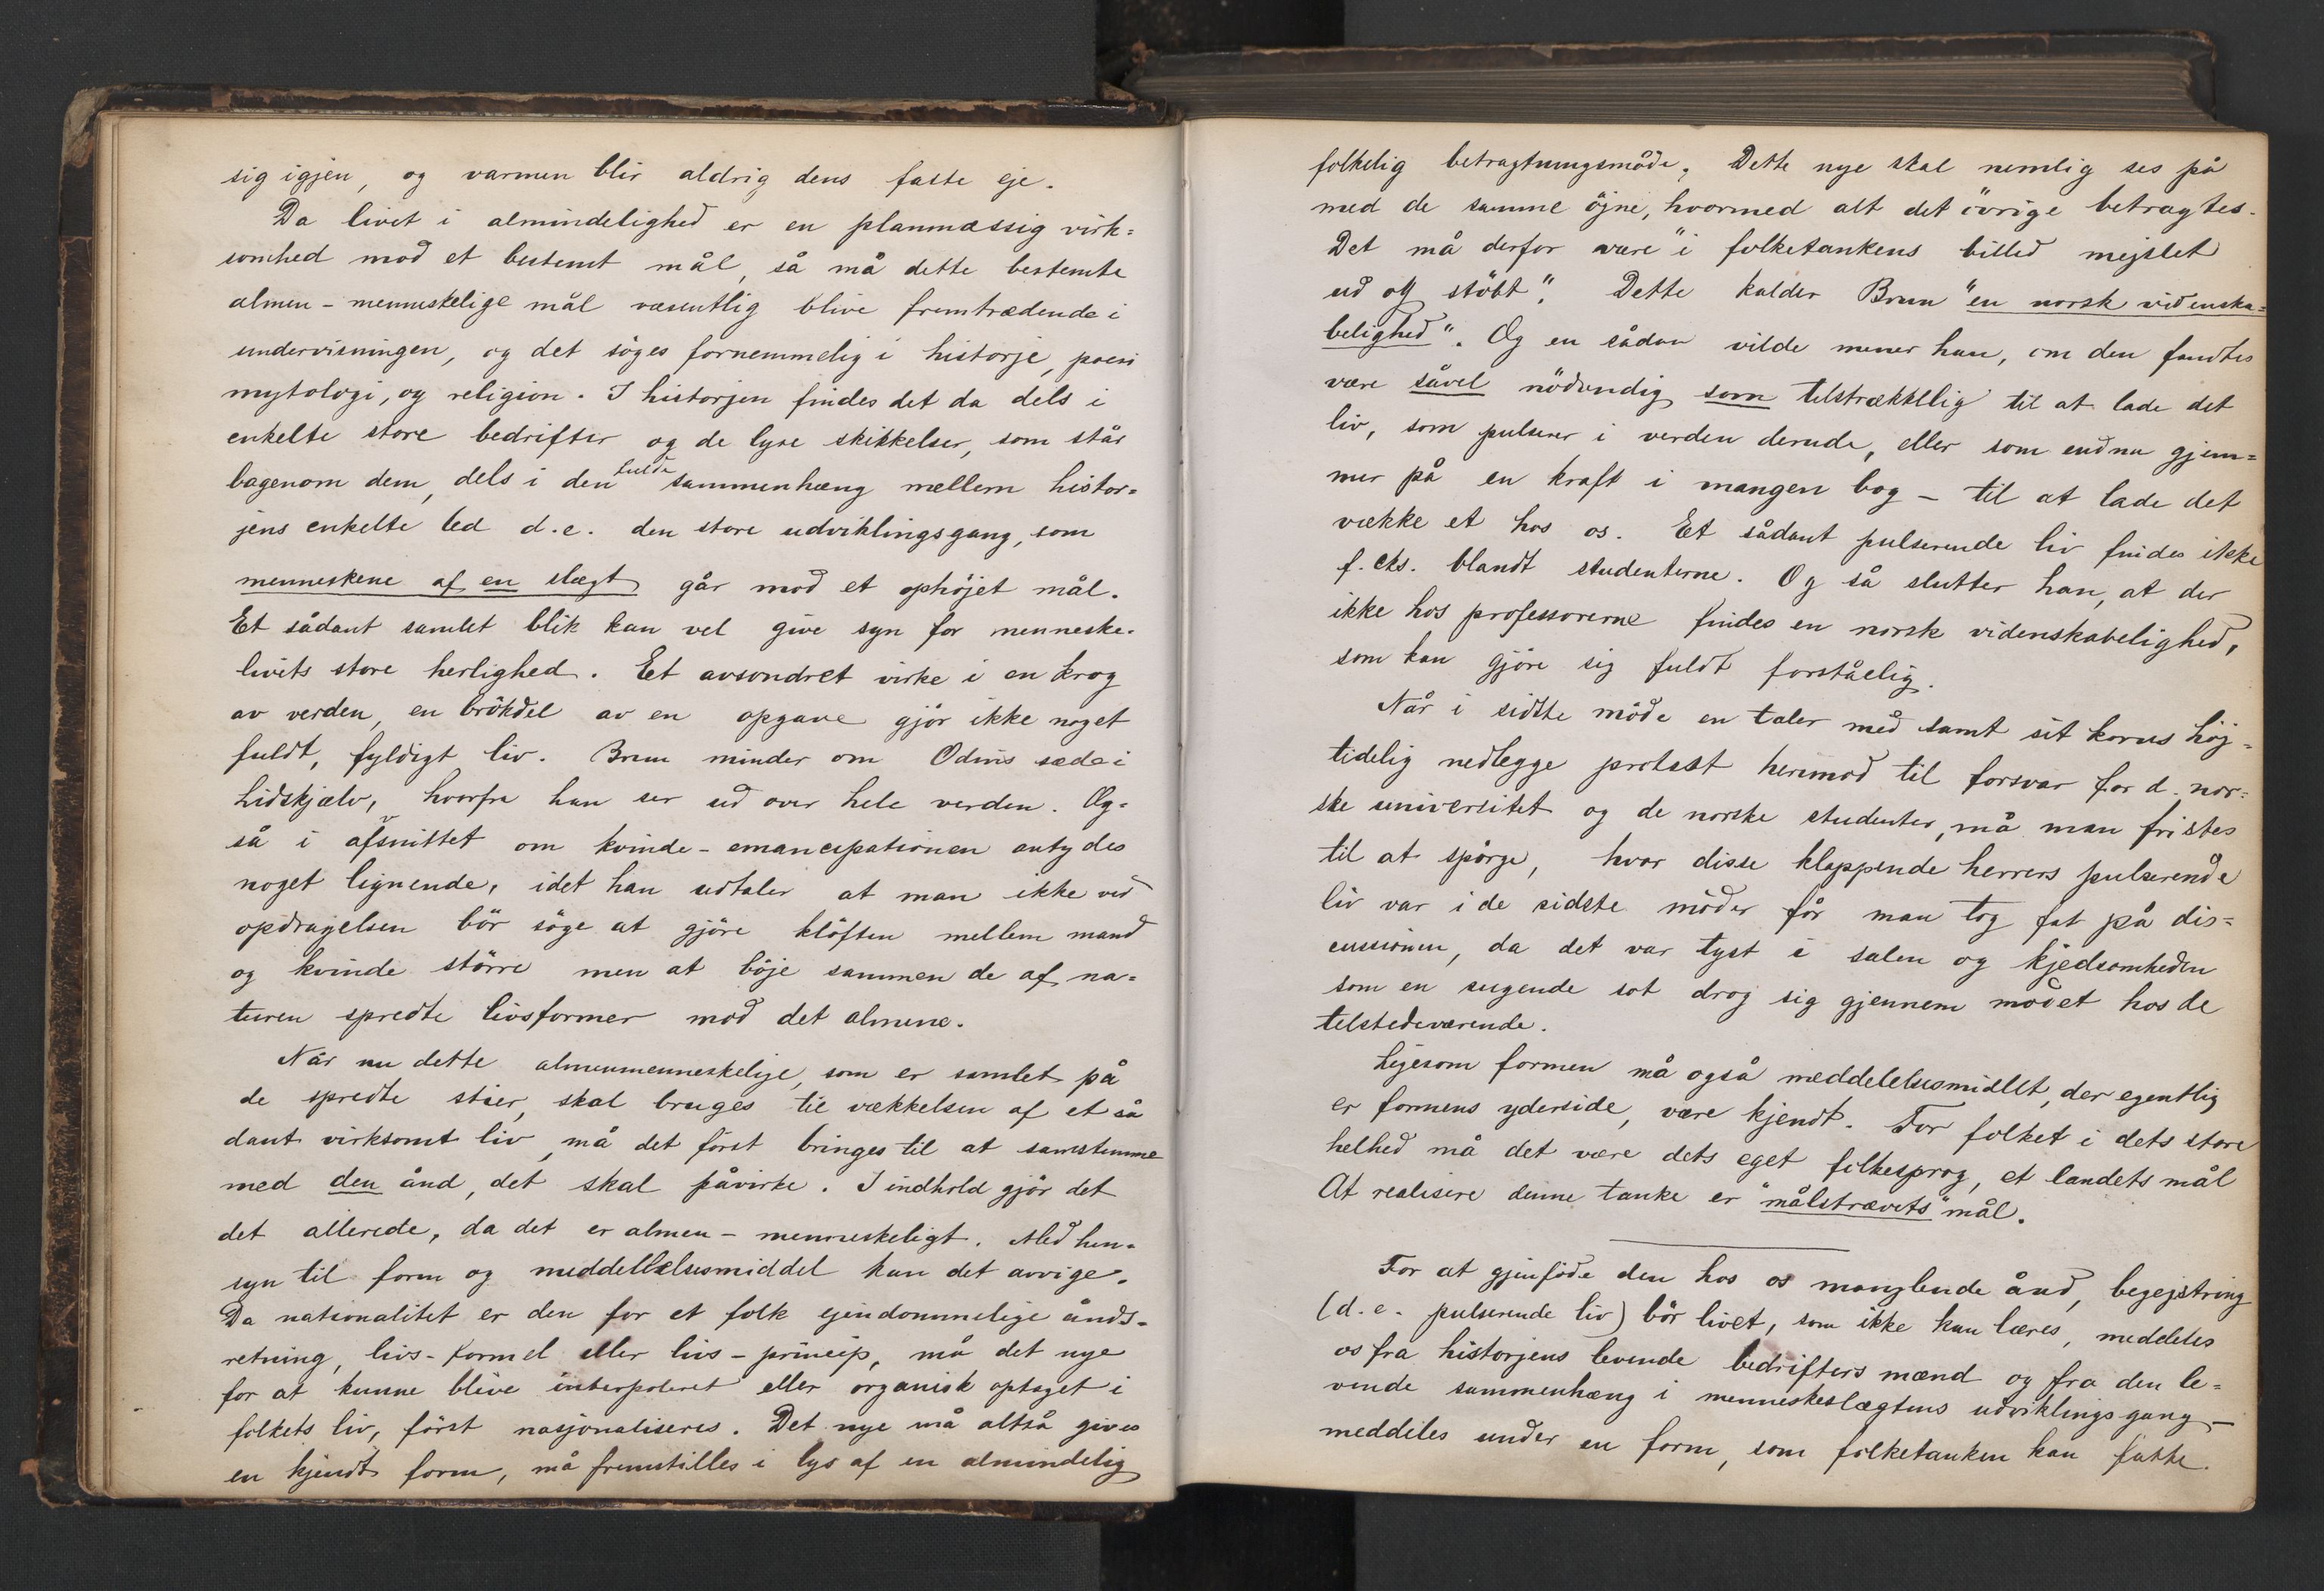 sig igjen, og varmen blir aldrig dens faste eje.
Da livet i almindelighed er en planmæssig virk=
somhed mod et bestemt mål, så må dette bestemte
almen-menneskelige mål væsentlig blive fremtrædende i
undervisningen, og det søges fornemmelig i historje, poesi
mytologi, og religion. I historjen findes det da dels i
enkelte store bedrifter og de lyse skikkelser, som står
bagenom dem, dels i den fulde sammenhæng mellem histor=
jens enkelte led d.e. den store udviklingsgang, som
menneskene af en slægt går mod et ophöjet mål.
Et sådant samlet blik kan vel give syn for menneske-
livets store herlighed. Et avsondret virke i en krog
av verden, en brökdel av en opgave gjör ikke noget
fuldt, fyldigt liv. Brun minder om Odins sæde i
hidskjælv, hvorfra han ser ud over hele verden. Og=
så i afsnittet om kvinde-emancipationen antydes
noget lignende, idet han udtaler at man ikke ved
opdragelsen bör söge at gjöre klöften mellem mand
og kvinde större men at böje sammen de af na=
turen spredte livsformer mod det almene.
Når nu dette almenmenneskelige, som er samlet på
de spredte stier, skal bruges til vækkelsen af et så
dant virksomt liv, må det först bringes til at samstemme
med den ånd, det skal påvirke. I indhold gjör det
det allerede, da det er almen-menneskeligt. Med hen=
syn til form og meddelelsesmiddel kan det avvige.
Da nationalitet er den for et folk ejendommelige ånds-
retning, livs-formel eller livs-princip, må det nye
for at kunne blive interpoleret eller organisk optaget i
folkets liv, först nasjonaliseres. Det nye må altså gives
en kjendt form, må fremstilles i lys af en almindelig
folkelig betragtningsmåde. Dette nye skal nemlig ses på
med de samme öjne, hvormed alt det övrige betragtes.
Det må derfor være "i folketankens billed mejslet
ud og stöbt". Dette kalder Brun "en norsk videnska=
belighed". Og en sådan vilde mener han, om den fandtes
være såvel nödvendig som tilstrækkelig til at lade det
liv, som pulserer i verden derude, eller som endnu gjem=
mer på en kraft i mangen bog - til at lade det
vække et hos os. Et sådant pulserende liv findes ikke
f. eks. blandt studenterne. Og så slutter han, at der
ikke hos professorerne findes en norsk videnskabelighed,
som kan gjöre sig fuldt forståelig.
Når i sidste möde en taler med samt sit korus höj=
tidelig nedlegge protest herimod til forsvar for d. nor=
ske universitet og de norske studenter, må man fristes
til at spörge, hvor disse klappende herrers pulserende
liv var i de sidste möder för man tog fat på dis=
cussionen, da det var tyst i salen og kjedsomheden
som en sugende sot drog sig gjennem mödet hos de
tilstedeværende.
Ligesom formen må også meddelelsesmidlet, der egentlig
er formens yderside, være kjendt. For folket i dets store
helhed må det være dets eget folkesprog, et landets mål
At realisere denne tanke er "målstrævets" mål.
For at gjenföde den hos os manglende ånd, begejstring
(d.e. pulserende liv) bör livet, som ikke kan læres, meddeles
os fra historjens levende bedrifters mænd og fra den le=
vende sammenhæng i menneskeslægtens udviklingsgang -
meddeles under en form, som folketanken kan fatte.